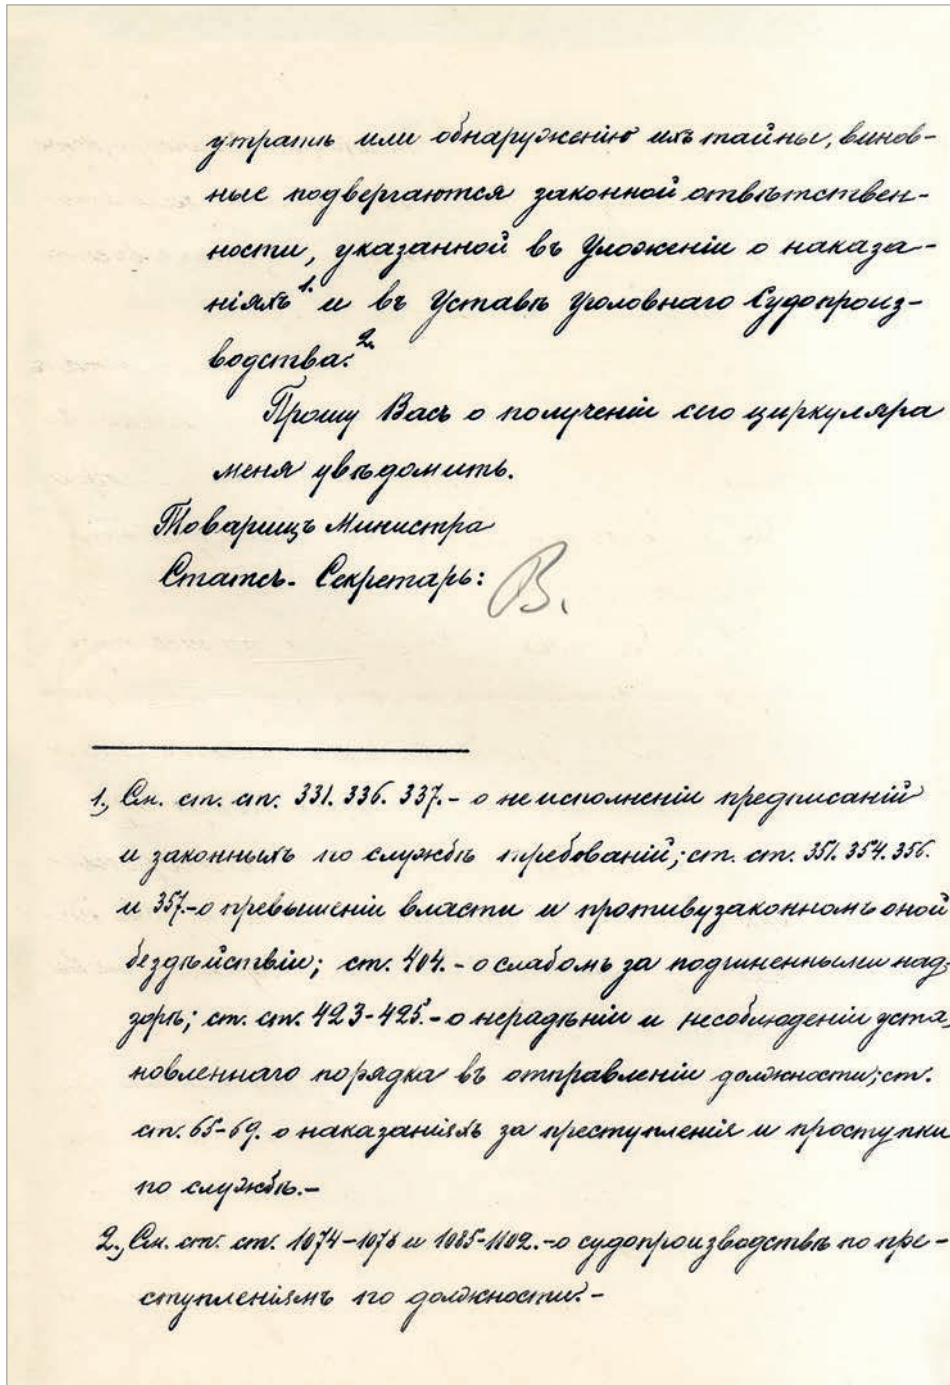 утратѣ или обнаруженію ихъ тайны, винов-
ные подвергаются законной отвѣтствен-
ности, указанной въ Уложеніи о наказа-
ніяхъ 1. и въ Уставѣ Уголовнаго Судопроиз-
водства. 2.
Прошу Васъ о полученіи сего циркуляра
меня увѣдомить.
Товарищъ Министра
Статсъ-Секретарь: В.
1., См. ст. ст. 331. 336. 337. - о неисполненіи предписаній
и законныхъ по службѣ требованій; ст. ст. 351. 354. 356.
и 357. - о превышеніи власти и противузаконномъ оной
бездѣйствіи; ст. 404. - о слабомъ за подчиненными над-
зорѣ; ст. ст. 423-425. - о нерадѣніи и несоблюденіи уста-
новленнаго порядка въ отправленіи должности; ст.
ст. 65-69. о наказаніяхъ за преступленія и проступки
по службѣ. -
2., См. ст. ст. 1074-1076 и 1085-1102. - о судопроизводствѣ по пре-
ступленіямъ по должности. -